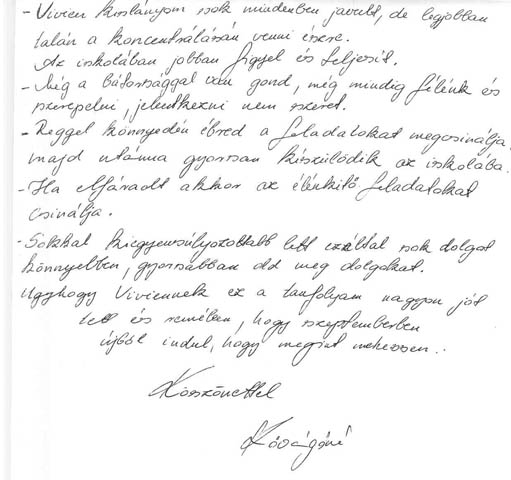 - Vivien kislányom sok mindenben javult, de legjobban
talán a koncentrálásán venni észre.
Az iskolában jobban figyel és teljesít.
- Még a bátorsággal van gond, még mindig félénk és
szerepelni, jelentkezni nem szeret.
- Reggel könnyedén ébred a feladatokat megcsinálja,
majd utánna gyorsan készülődik az iskolába.
- Ha elfáradt akkor az élénkítő feladatokat
csinálja.
- Sokkal kiegyensúlyozottabb lett ezáltal sok dolgot
könnyebben, gyorsabban old meg dolgokat.
Úgyhogy Viviennek ez a tanfolyam nagyon jót
tett és remélem, hogy szeptemberben
újból indul, hogy megint mehessen..
Köszönettel
Kóságóné